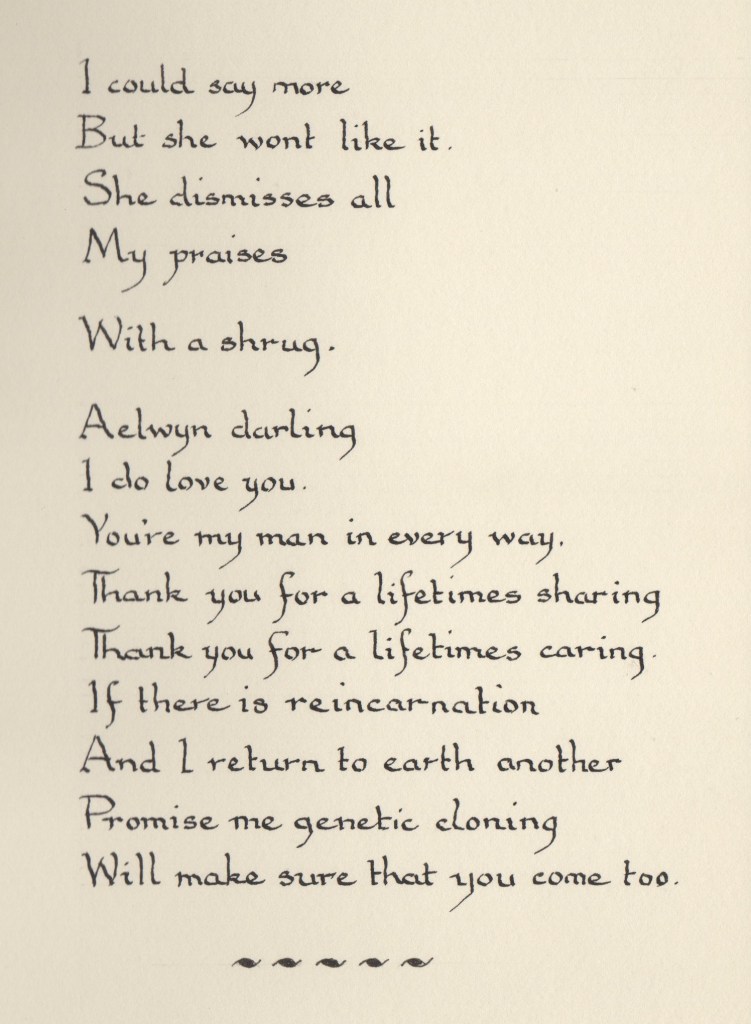 I could say more
But she wont like it.
She dismisses all
My praises
With a shrug.
Aelwyn darling
I do love you.
You're my man in every way.
Thank you for a lifetimes sharing
Thank you for a lifetimes caring.
If there is reincarnation
And I return to earth another
Promise me genetic cloning
Will make sure that you come too.